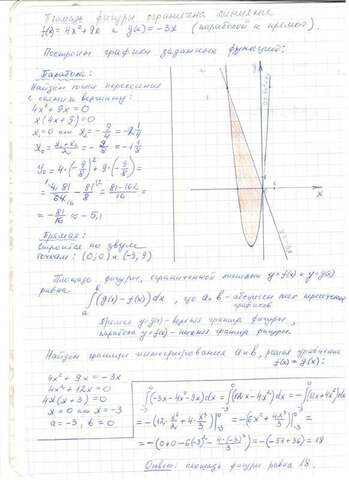 Площадь фигуры ограничена линиями
f(x) = 4x²+9x и g(x) = -3x (параболой и прямой).
Построим графики заданных функций:
Парабола:
Найдём точки пересечения
с осями и вершину:
4x²+9x = 0
x(4x+9) = 0
x₁=0 или x₂ = -9/4 = -2 1/4
= 4·81/64 - 81/8 = 81-162/16 =
= -81/16 ≈ -5,1
Прямая:
строится по двум
точкам: (0;0) и (-3;9)
y=4x²+9x
y=-3x
x
Площадь фигуры, ограниченной линиями y=f(x) и y=g(x)
равна ∫ₐᵇ (g(x) - f(x))dx, где a и b - абсциссы точек пересечения
графиков
прямая y=g(x) - верхняя граница фигуры,
парабола y=f(x) - нижняя граница фигуры.
Найдём границы интегрирования a и b, решив уравнение
f(x) = g(x):
4x²+9x = -3x
4x²+12x = 0
4x(x+3) = 0
x=0 или x=-3
a=-3, b=0
∫₋₃⁰(-3x-4x²-9x)dx = ∫₋₃⁰(-12x-4x²)dx = -∫₋₃⁰(12x+4x²)dx
= -(12·x²/2 + 4·x³/3)|₋₃⁰ = -(6x²+4x³/3)|₋₃⁰ =
= -(0+0-6(-3)²-4·(-3)³/3) = -(-54+36) = 18
Ответ: площадь фигуры равна 18.